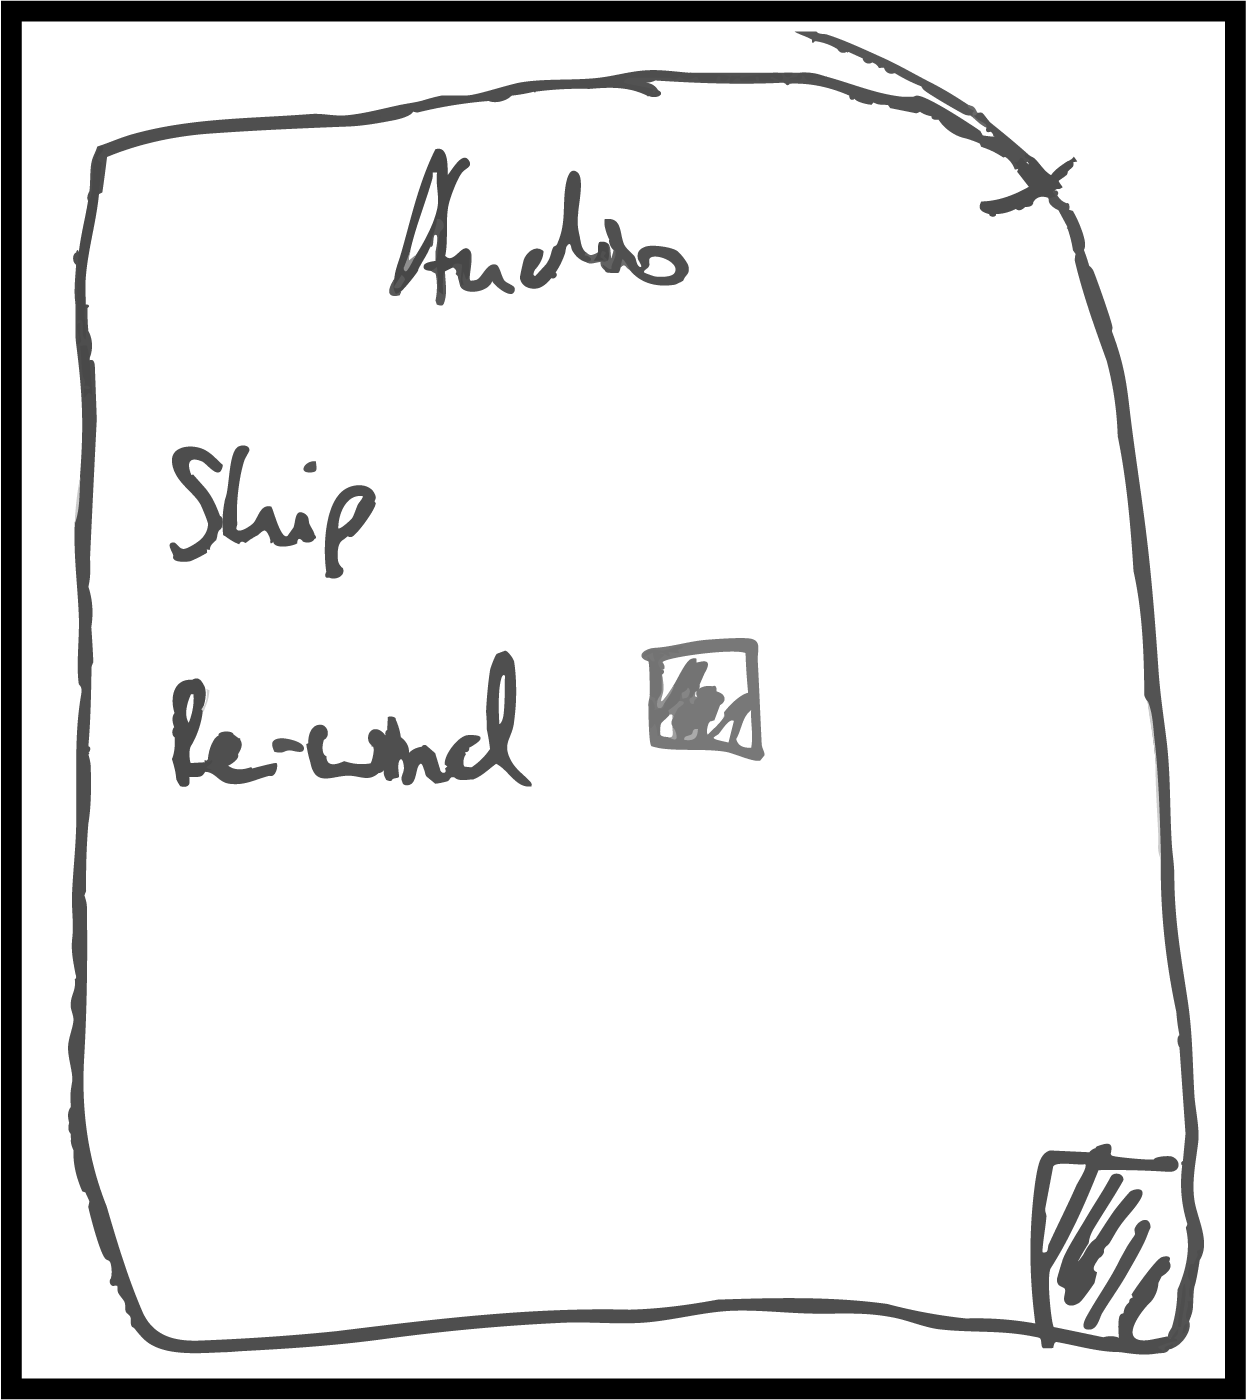 Audio
Skip
Re-wind